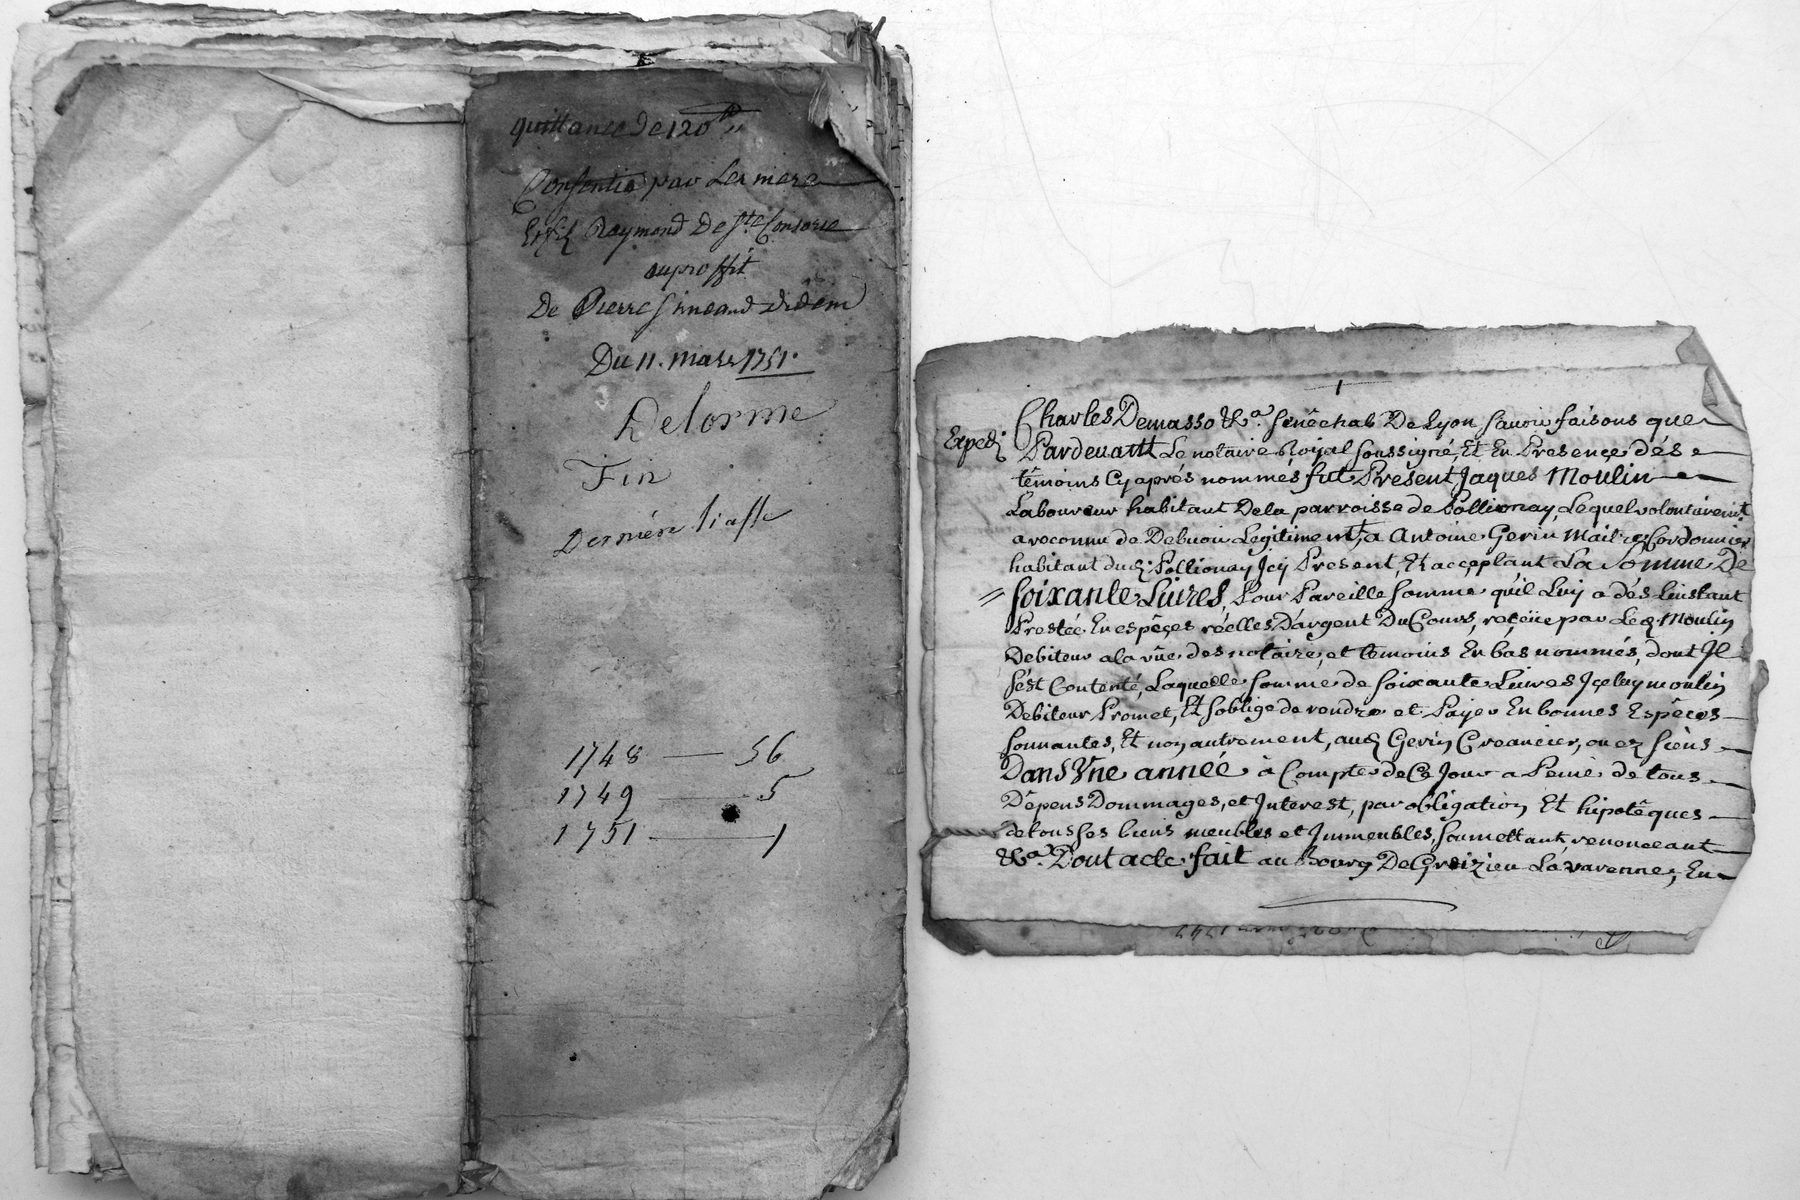 quittance de 120ᵗᵗ
Consentie par Les mere
Et filz Raymond De Sᵗᵉ Consorce
au proffit
De Pierre Simeand
Du 11. mars 1751.
Delorme
Fin
Derniére liasse
1748 — 56
1749 — 5
1751 — 1
Charles Demasso &ᵃ. Senêchal De Lyon Savoir faisons que
Exped:
Pardevant Le notaire Royal soussigné, Et En Presence dés
têmoins Cy aprés nommés fut Present Jaques Moulin
Laboureur habitant De la parroisse de Pollionay, Lequel volontairemt.
a reconnu de Debvoir Legitimemt, a Antoine Gerin Maitre Cordonnier
habitant dud. Pollionay Jcy Present, Et acceptant La Somme De
Soixante Livres, Pour Pareille somme qu'il Luy a dés Linstant
Prestée En espêçes réelles D'argent Du Cours, reçeüe par Led. Moulin
Debiteur a la vüe des notaire, et têmoins En bas nommés, dont Jl
s'est Contenté, Laquelle somme de soixante Livres Jçeluy moulin
Debiteur Promet, Et s'oblige de rendre et Payer En bonnes Espêces
sonnantes, Et non autrement, aud. Gerin Creancier, ou ez siens
Dans Vne année à Compter de Ce Jour a Peine de tous
Dêpens Dommages, et Jnterest, par obligation Et hipotêques
de tous ses biens meubles et Jmmeubles, soumettant, renonceant
&ᵃ. Dont acte fait au Bourg De Greizieu La varenne, En